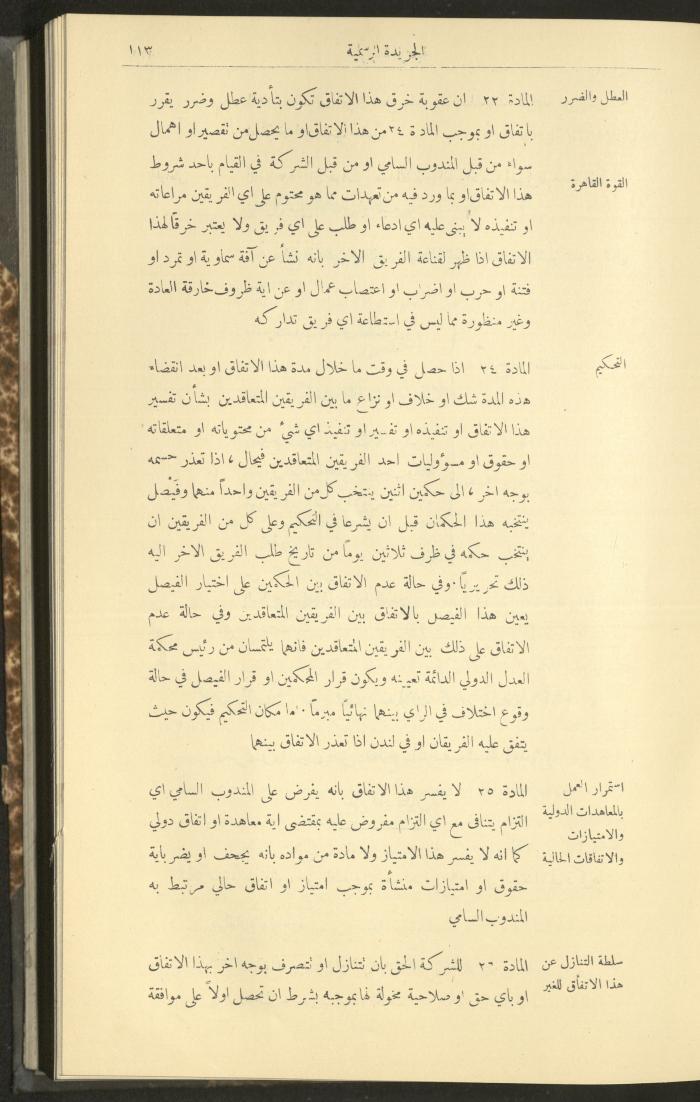 الجريدة الرسمية
١١٣
العطل والضرر
المادة ٢٢ ان عقوبة خرق هذا الاتفاق تكون بتأدية عطل وضرر يقرر
باتفاق او بموجب المادة ٢٤ من هذا الاتفاق او ما يحصل من تقصير او اهمال
سواء من قبل المندوب السامي او من قبل الشركة في القيام باحد شروط
القوة القاهرة
هذا الاتفاق او بما ورد فيه من تعهدات مما هو محتوم على اي الفريقين مراعاته
او تنفيذه لا يبنى عليه اي ادعاء او طلب على اي فريق ولا يعتبر خرقًا لهذا
الاتفاق اذا ظهر لقناعة الفريق الاخر بانه نشأ عن آفة سماوية او تمرد او
فتنة او حرب او اضراب او اعتصاب عمال او عن اية ظروف خارقة العادة
وغير منظورة مما ليس في استطاعة اي فريق تداركه
التحكيم
المادة ٢٤ اذا حصل في وقت ما خلال مدة هذا الاتفاق او بعد انقضاء
هذه المدة شك او خلاف او نزاع ما بين الفريقين المتعاقدين بشأن تفسير
هذا الاتفاق او تنفيذه او تفسير او تنفيذ اي شيء من محتوياته او متعلقاته
او حقوق او مسؤوليات احد الفريقين المتعاقدين فيحال ، اذا تعذر حسمه
بوجه اخر ، الى حكمين اثنين ينتخب كل من الفريقين واحداً منهما وفَيْصل
ينتخبه هذا الحكمان قبل ان يشرعا في التحكيم وعلى كل من الفريقين ان
ينتخب حكمه في ظرف ثلاثين يومًا من تاريخ طلب الفريق الاخر اليه
ذلك تحريريًا . وفي حالة عدم الاتفاق بين الحكمين على اختيار الفيصل
يعين هذا الفيصل بالاتفاق بين الفريقين المتعاقدين وفي حالة عدم
الاتفاق على ذلك بين الفريقين المتعاقدين فانهما يلتمسان من رئيس محكمة
العدل الدولي الدائمة تعيينه ويكون قرار المحكمين او قرار الفيصل في حالة
وقوع اختلاف في الراي بينهما نهائيًا مبرمًا . اما مكان التحكيم فيكون حيث
يتفق عليه الفريقان او في لندن اذا تعذر الاتفاق بينهما
استمرار العمل
بالمعاهدات الدولية
والامتيازات
والاتفاقات الحالية
المادة ٢٥ لا يفسر هذا الاتفاق بانه يفرض على المندوب السامي اي
التزام يتنافى مع اي التزام مفروض عليه بمقتضى اية معاهدة او اتفاق دولي
كما انه لا يفسر هذا الامتياز ولا مادة من مواده بانه يجحف او يضر باية
حقوق او امتيازات منشأة بموجب امتياز او اتفاق حالي مرتبط به
المندوب السامي
سلطة التنازل عن
هذا الاتفاق للغير
المادة ٢٦ للشركة الحق بان تتنازل او تتصرف بوجه اخر بهذا الاتفاق
او باي حق او صلاحية مخولة لها بموجبه بشرط ان تحصل اولاً على موافقة